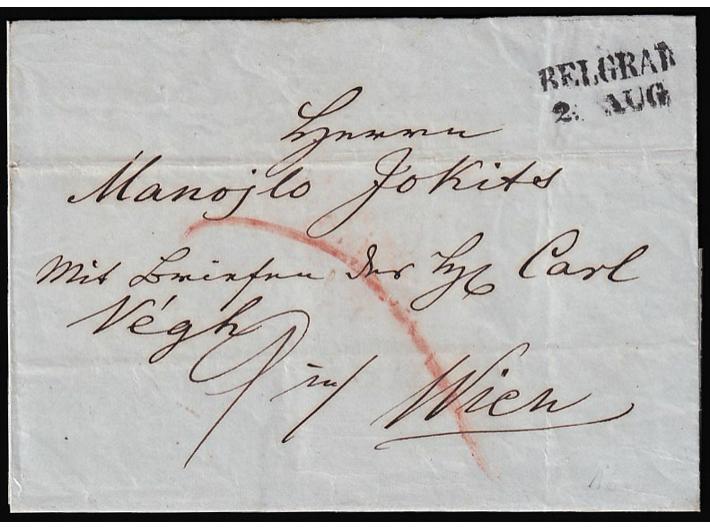 BELGRAD
2. AUG
Herrn
Manojlo Jokits
Mit Briefen der H Carl
Végh
in/ Wien